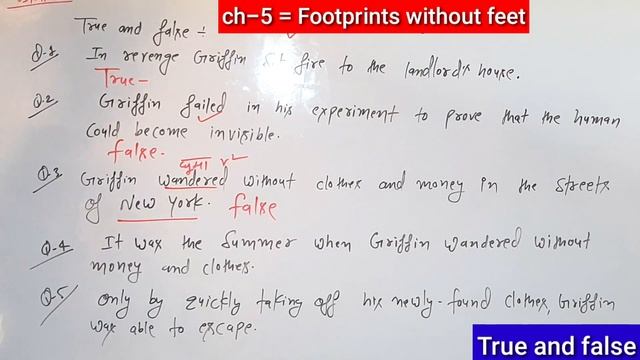 ch-5 = Footprints without feet
True and false ÷
Q-1 In revenge Griffin set fire to the landlord's house.
True-
Q-2 Griffin failed in his experiment to prove that the human
could become invisible.
false.
घुमा
Q.3 Griffin wandered without clothes and money in the streets
of New York. false
Q-4 It was the Summer when Griffin wandered without
money and clothes.
Q-5 Only by quickly taking off his newly-found clothes, Griffin
was able to escape.
True and false